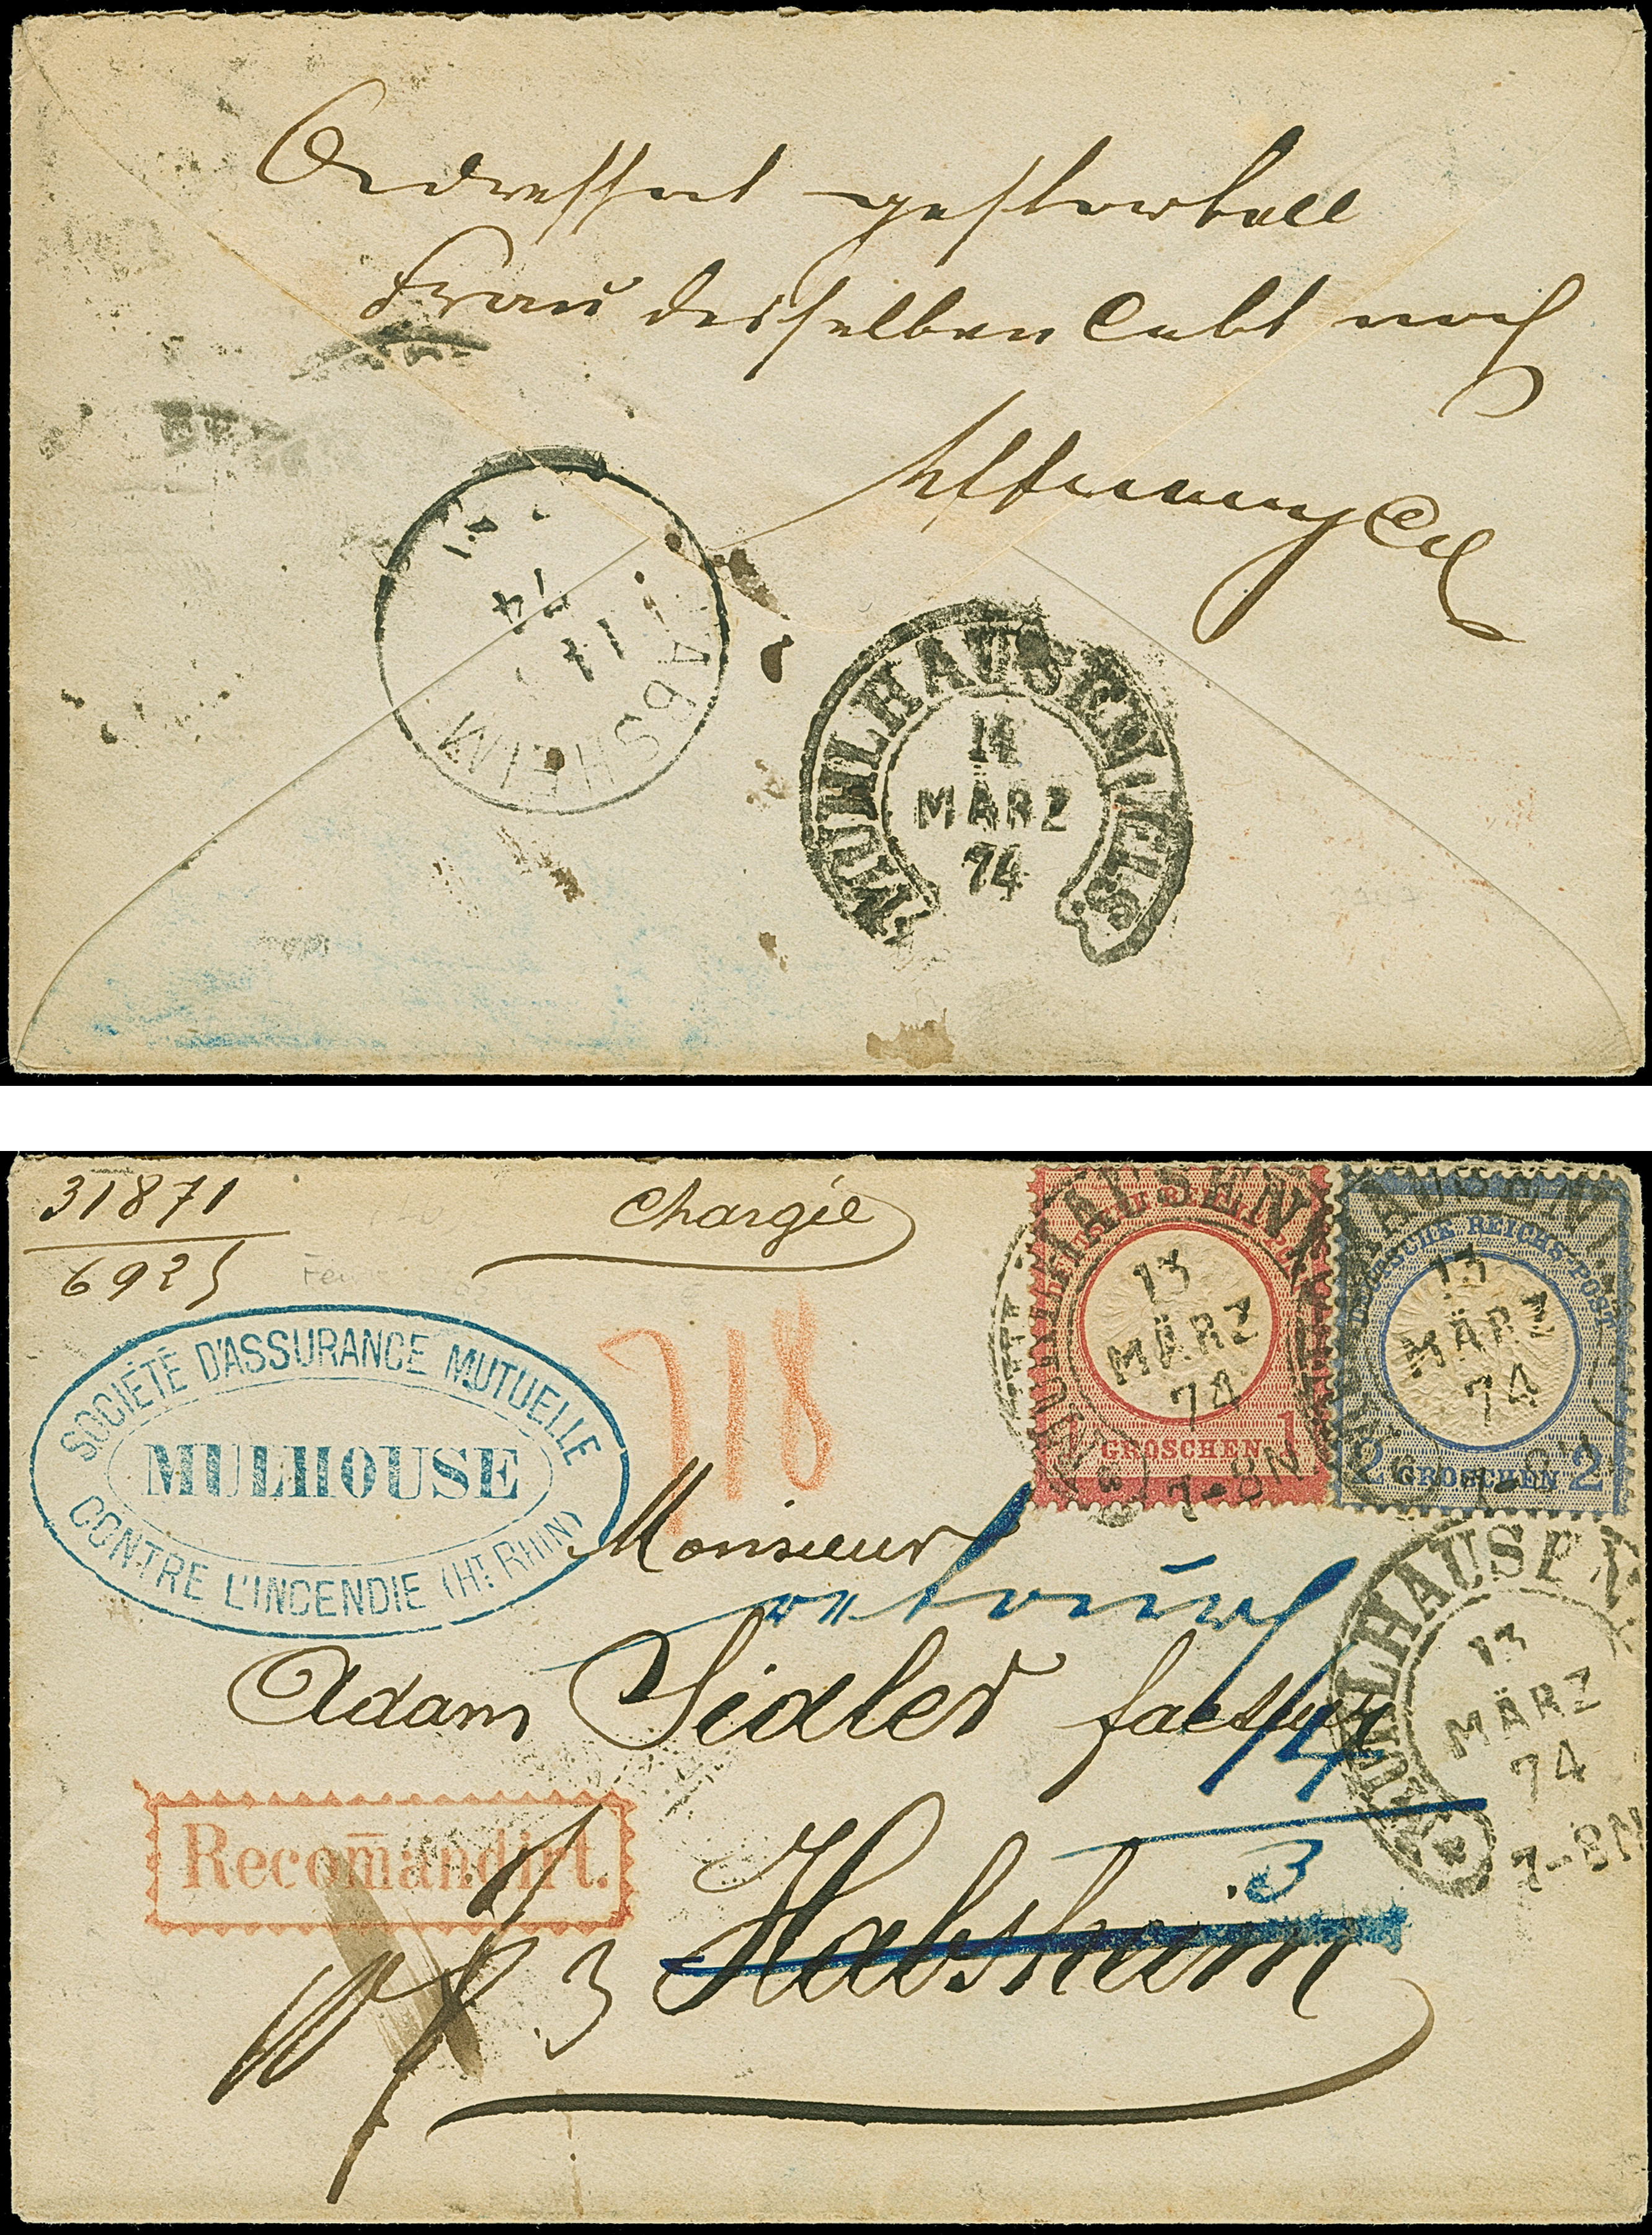 Adressat gestorben
Frau desselben lebt noch
HABSHEIM
74
MUELHAUSEN I/ELS
14
MÄRZ
74
31871
6925
Chargée
718
SOCIÉTÉ D'ASSURANCE MUTUELLE
MULHOUSE
CONTRE L'INCENDIE (HT. RHIN)
DEUTSCHE REICHS-POST
13
MÄRZ
74
1 GROSCHEN 1
7-8N
DEUTSCHE REICHS-POST
13
MÄRZ
74
2 GROSCHEN 2
Monsieur
retour
Adam Sidler facteur
MUELHAUSEN
13
MÄRZ
74
7-8N
14
3
Recom̄andirt.
Habsheim
3